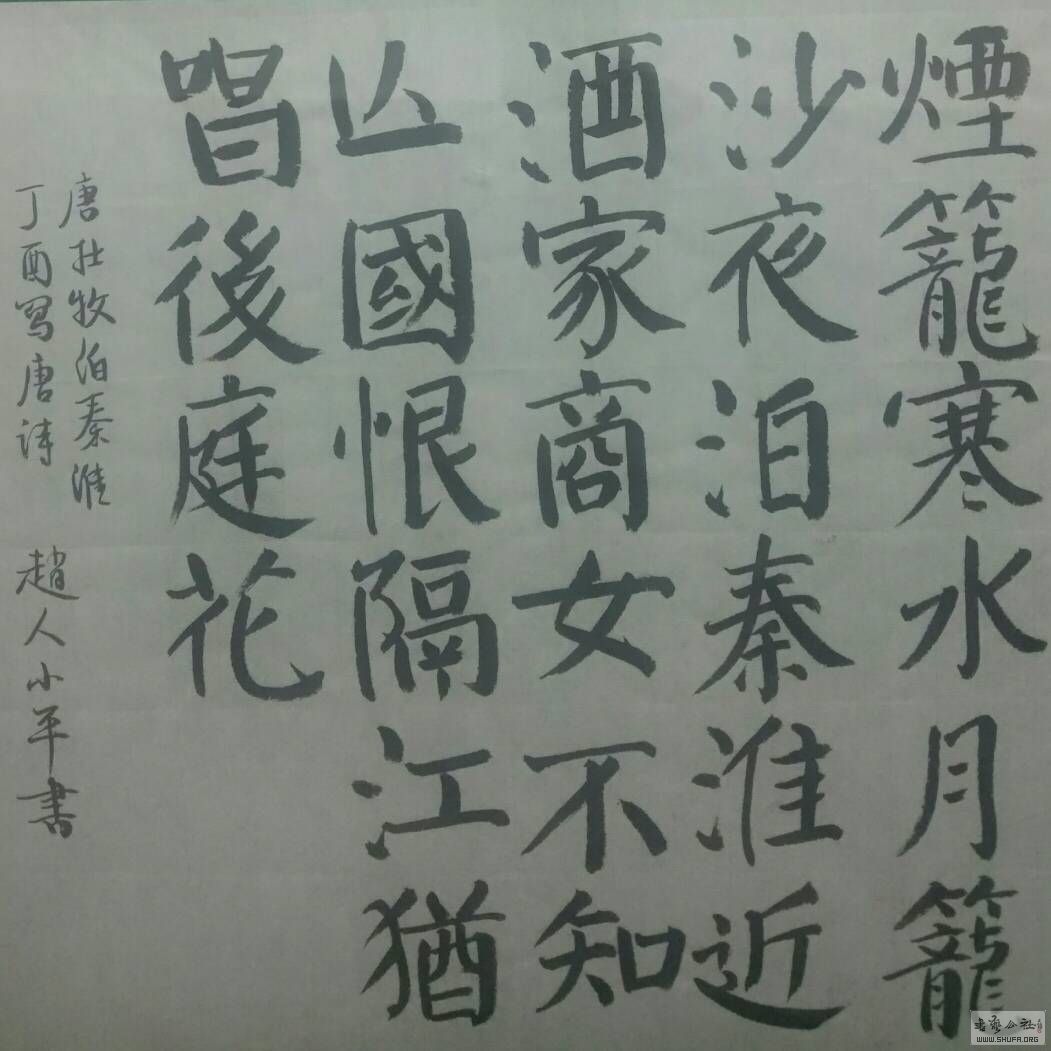 煙籠寒水月籠
沙夜泊秦淮近
酒家商女不知
亾國恨隔江猶
唱後庭花
唐杜牧泊秦淮
丁酉写唐诗 趙人小平書
书艺公社
WWW.SHUFA.ORG